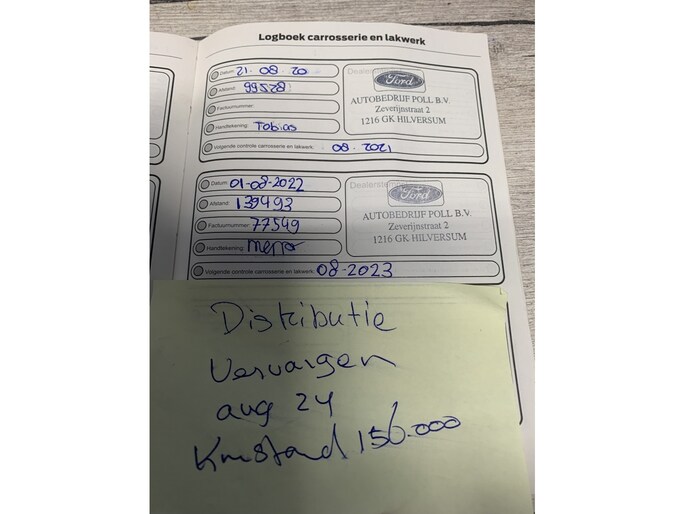 Logboek carrosserie en lakwerk
Datum: 21-08-20
Afstand: 99528
Factuurnummer:
Handtekening: Tobias
Volgende controle carrosserie en lakwerk: 08-2021
Ford
AUTOBEDRIJF POLL B.V.
Zeverijnstraat 2
1216 GK HILVERSUM
Datum: 01-08-2022
Afstand: 139493
Factuurnummer: 77549
Handtekening:
Volgende controle carrosserie en lakwerk: 08-2023
Dealerstempel
Ford
AUTOBEDRIJF POLL B.V.
Zeverijnstraat 2
1216 GK HILVERSUM
Distributie
Vervangen
aug 24
Kmstand 156.000